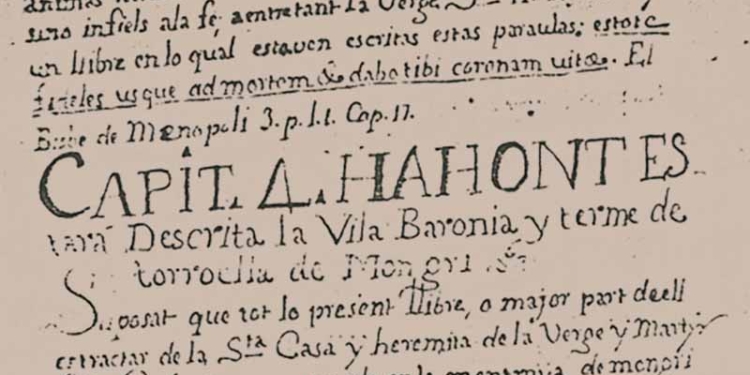 sino infiels ala fe, aentretant la Verge
un llibre en lo qual estaven escritas estas paraulas: estote
fideles usque ad mortem & dabo tibi coronam uitæ. El
Bisbe de Monopoli 3. p. l. 1. Cap. 17.
CAPIT. 4. HAHONT ES
tará Descrita la Vila Baronia y terme de
torroella de Mongri
Suposat que tot lo present llibre, o major part dell
estractar de la Sta Casa y heremita de la Verge y Martyr